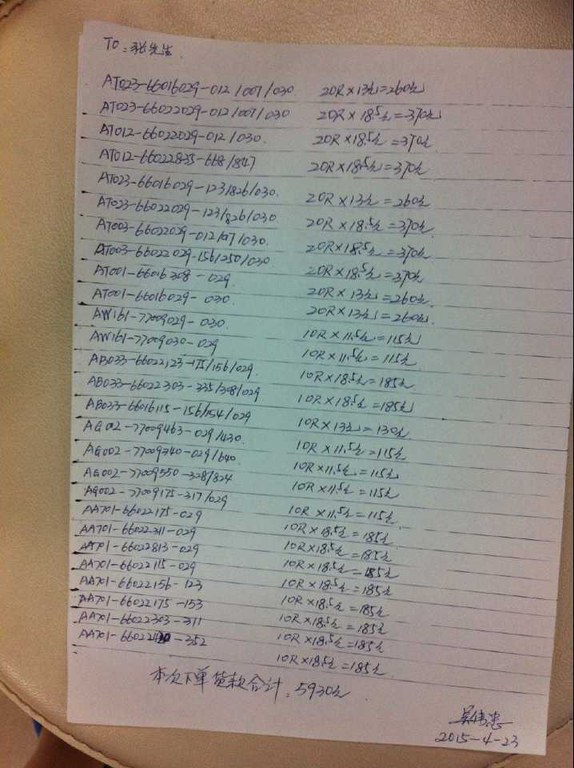 TO: 张先生
AT023-66016029-012/007/030 20R×13元=260元
AT023-66022029-012/007/030 20R×18.5元=370元
AT012-66022029-012/030. 20R×18.5元=370元
AT012-66022835-668/847 20R×18.5元=370元
AT023-66016029-123/826/030. 20R×13元=260元
AT023-66022029-123/826/030 20R×18.5元=370元
AT003-66022029-012/07/030. 20R×18.5元=370元
AT003-66022029-156/250/030 20R×18.5元=370元
AT001-66016308-029 20R×13元=260元
AT001-66016029-030. 20R×13元=260元
AW161-77009029-030. 10R×11.5元=115元
AW161-77009030-029 10R×11.5元=115元
AB033-66022123-175/156/029. 10R×18.5元=185元
AB033-66022303-335/308/029 10R×18.5元=185元
AB033-66016115-156/154/029 10R×13元=130元
AG002-77009463-029/430 10R×11.5元=115元
AG002-77009340-029/640. 10R×11.5元=115元
AG002-77009550-328/824 10R×11.5元=115元
AG002-77009175-317/029 10R×11.5元=115元
AA701-66022175-029 10R×18.5元=185元
AA701-66022311-029 10R×18.5元=185元
AA701-66022813-029 10R×18.5元=185元
AA701-66022115-029 10R×18.5元=185元
AA701-66022156-123 10R×18.5元=185元
AA701-66022175-153 10R×18.5元=185元
AA701-66022303-311 10R×18.5元=185元
-352 10R×18.5元=185元
本次下单货款合计:5930元
2015-4-23